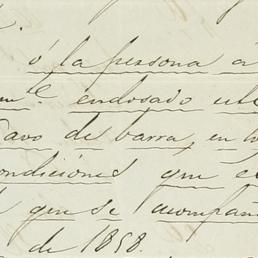 ó la persona á
endosado
de barra, en
ondiciones que e
que se acompañ
de 1858.